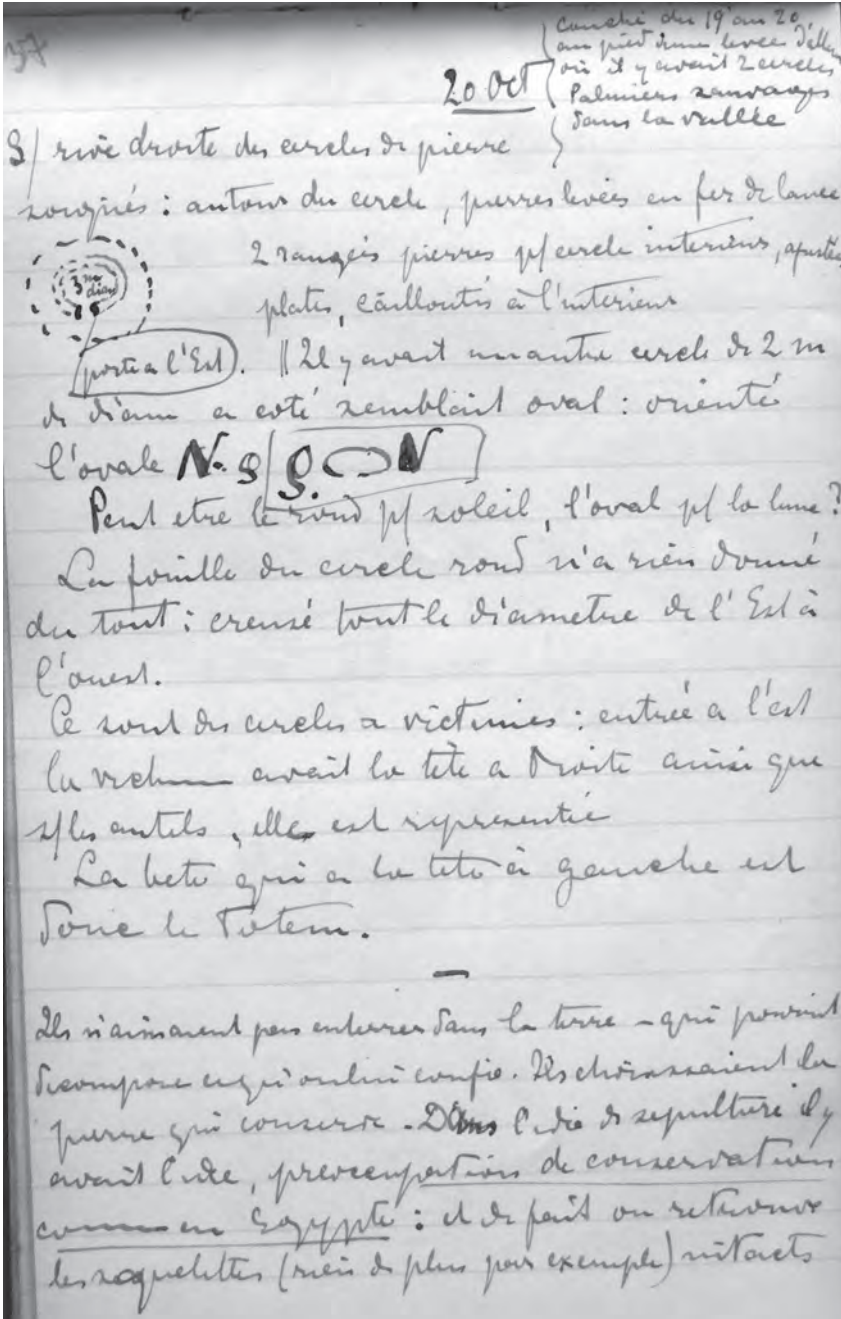 37
20 Oct
Couché du 19 au 20
au pied d'une levée d'allu
où il y avait 2 cercles
Palmiers sauvages
dans la vallée
S/ rive droite des cercles de pierre
soignés : autour du cercle, pierres levées en fer de lance
2 rangées pierres p/ cercle interieur, ajustées
plates, cailloutis à l'interieur
3 m
diam
porte a l'Est. || Il y avait un autre cercle de 2 m
de diam a coté semblait oval : orienté
l'ovale N. S / S. N
Peut etre le rond p/ soleil, l'oval p/ la lune ?
La fouille du cercle rond n'a rien donné
du tout : creusé tout le diametre de l'Est à
l'ouest.
Ce sont des cercles a victimes : entrée a l'est
la victime avait la tête a droite ainsi que
s/ les autels, elle est representée
La bete qui a la tete à gauche est
donc le Totem.
Ils n'aimaient pas enterrer dans la terre - qui pourrit
decompose ce qu'on lui confie. Ils choisissaient la
pierre qui conserve - Dans l'idée de sepulture il y
avait l'idée, preoccupation de conservation
comme en Egypte : et de fait on retrouve
les squelettes (rien de plus par exemple) intacts